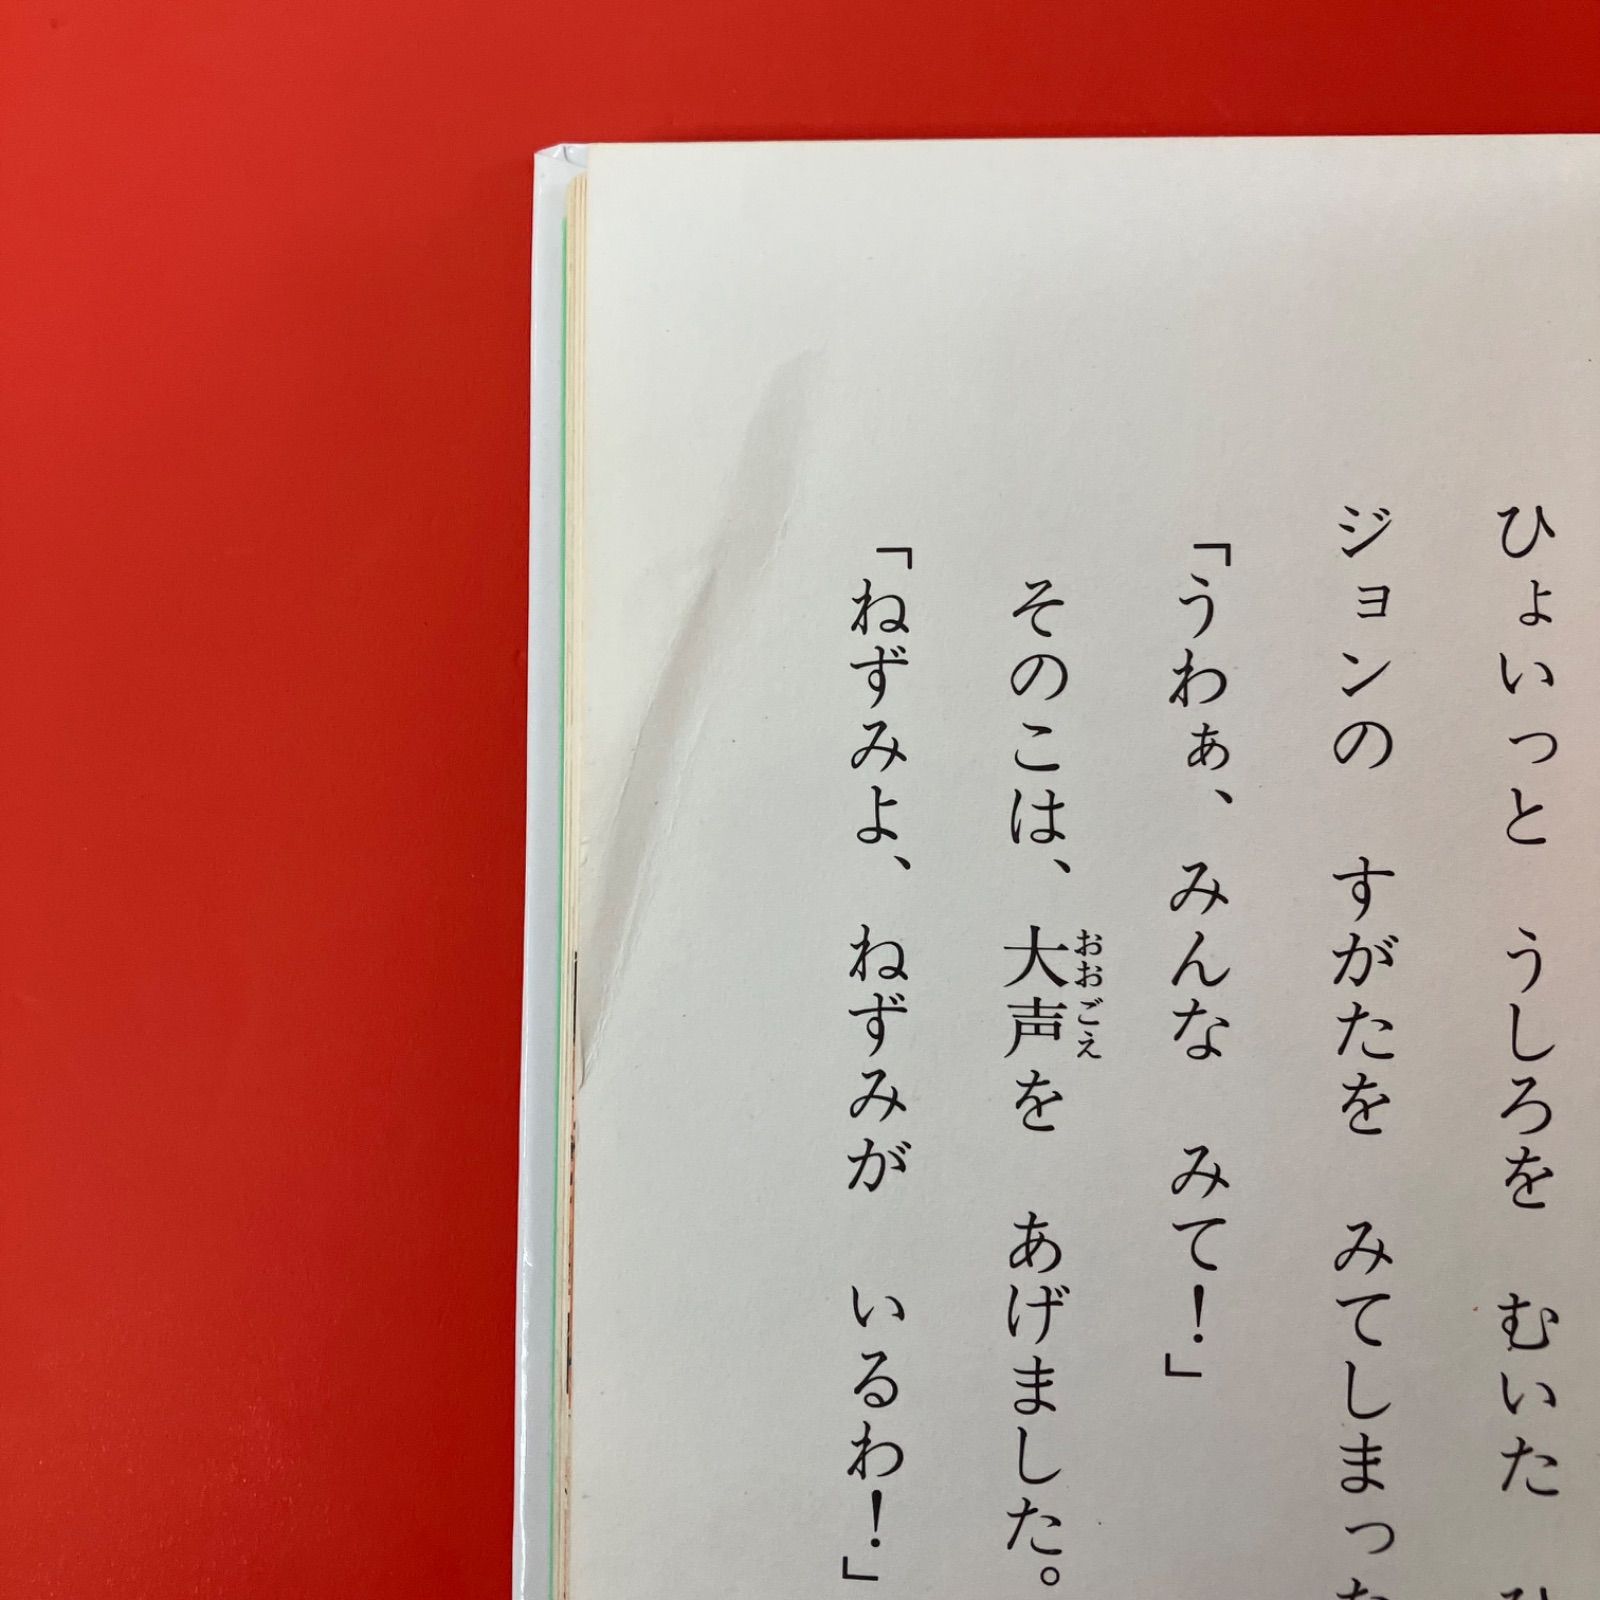 ひょいっと うしろを むいた
ジョンの すがたを みてしまった
「うわぁ、みんな みて！」
そのこは、大声を あげました。
おおごえ
「ねずみよ、ねずみが いるわ！」